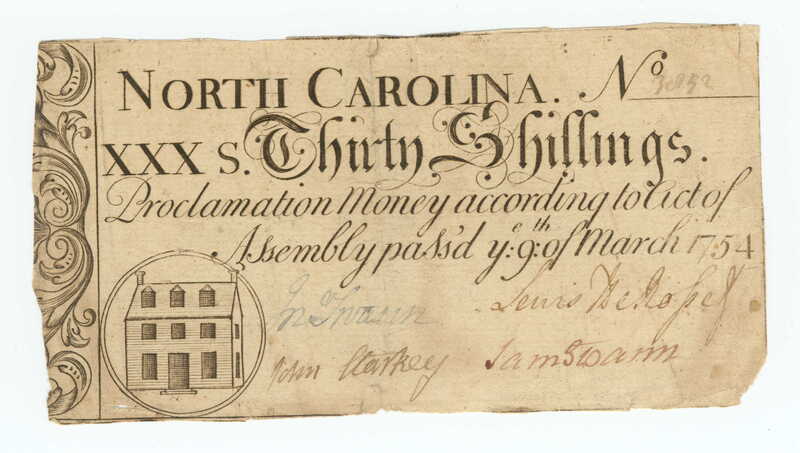 NORTH CAROLINA. No
XXX S. Thirty Shillings.
Proclamation Money according to Act of
Assembly pass'd ye: 9th: of March 1754
Jn Swann Lewis DeRosset
John Starkey Sam Swann